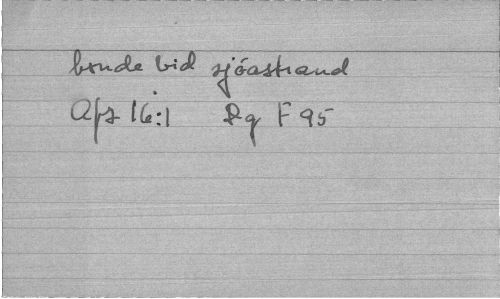 bonde vid sjöastrand
Afs 16:1 Rg F 95